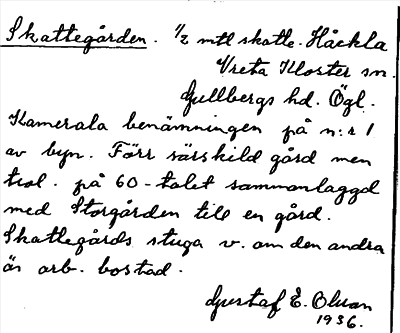 Skattegården. 1/2 mtl skatte. Håckla
Vreta Kloster sn.
Gullbergs hd. Ögl.
Kamerala benämningen på n:r 1
av byn. Förr särskild gård men
trol. på 60-talet sammanlaggd
med Storgården till en gård.
Skattegårds stuga v. om den andra
är arb. bostad.
Gustaf E. Olsson
1936.